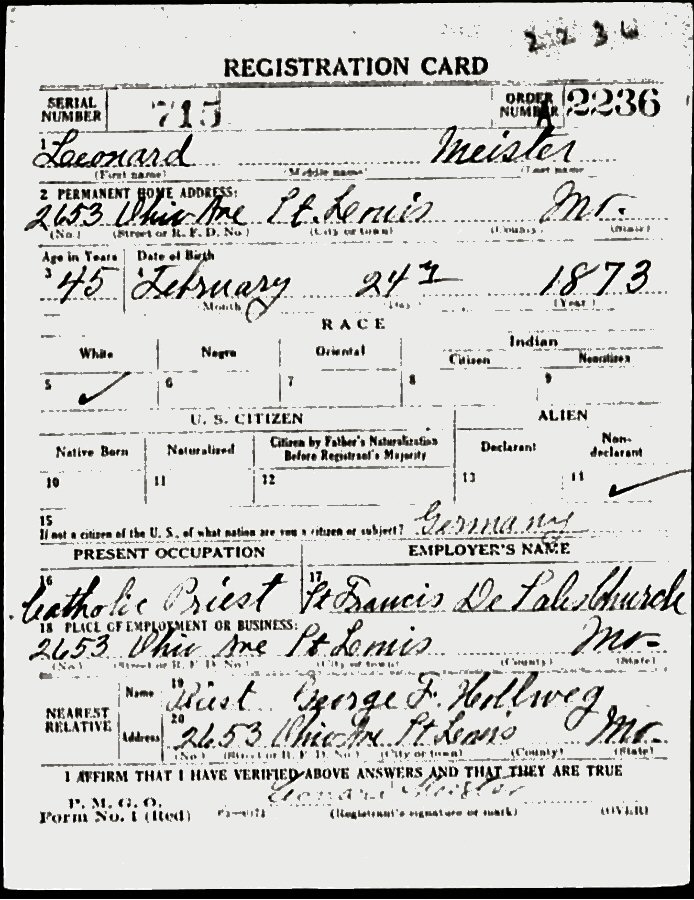 2236
REGISTRATION CARD
SERIAL NUMBER 715 ORDER NUMBER A 2236
1 Leonard Meister
(First name) (Middle name) (Last name)
2 PERMANENT HOME ADDRESS:
2653 Ohio Ave St. Louis Mo.
(No.) (Street or R. F. D. No.) (City or town) (County) (State)
Age in Years Date of Birth
3 45 4 February 24 1873
Month Day (Year)
RACE
White Negro Oriental Indian
Citizen Noncitizen
5 ✓ 6 7 8 9
U. S. CITIZEN ALIEN
Native Born Naturalized Citizen by Father's Naturalization Before Registrant's Majority Declarant Non-declarant
10 11 12 13 14 ✓
15
If not a citizen of the U. S., of what nation are you a citizen or subject? Germany
PRESENT OCCUPATION EMPLOYER'S NAME
16 Catholic Priest 17 St Francis De Sales Church
18 PLACE OF EMPLOYMENT OR BUSINESS:
2653 Ohio Ave St Louis Mo-
(No.) (Street or R. F. D. No.) (City or town) (County) (State)
NEAREST RELATIVE Name 19 George F. Hollweg
Address 20 2653 Ohio Ave St Louis Mo-
(No.) (Street or R. F. D. No.) (City or town) (County) (State)
I AFFIRM THAT I HAVE VERIFIED ABOVE ANSWERS AND THAT THEY ARE TRUE
P. M. G. O. Leonard Meister
Form No. 1 (Red) (Registrant's signature or mark) (OVER)